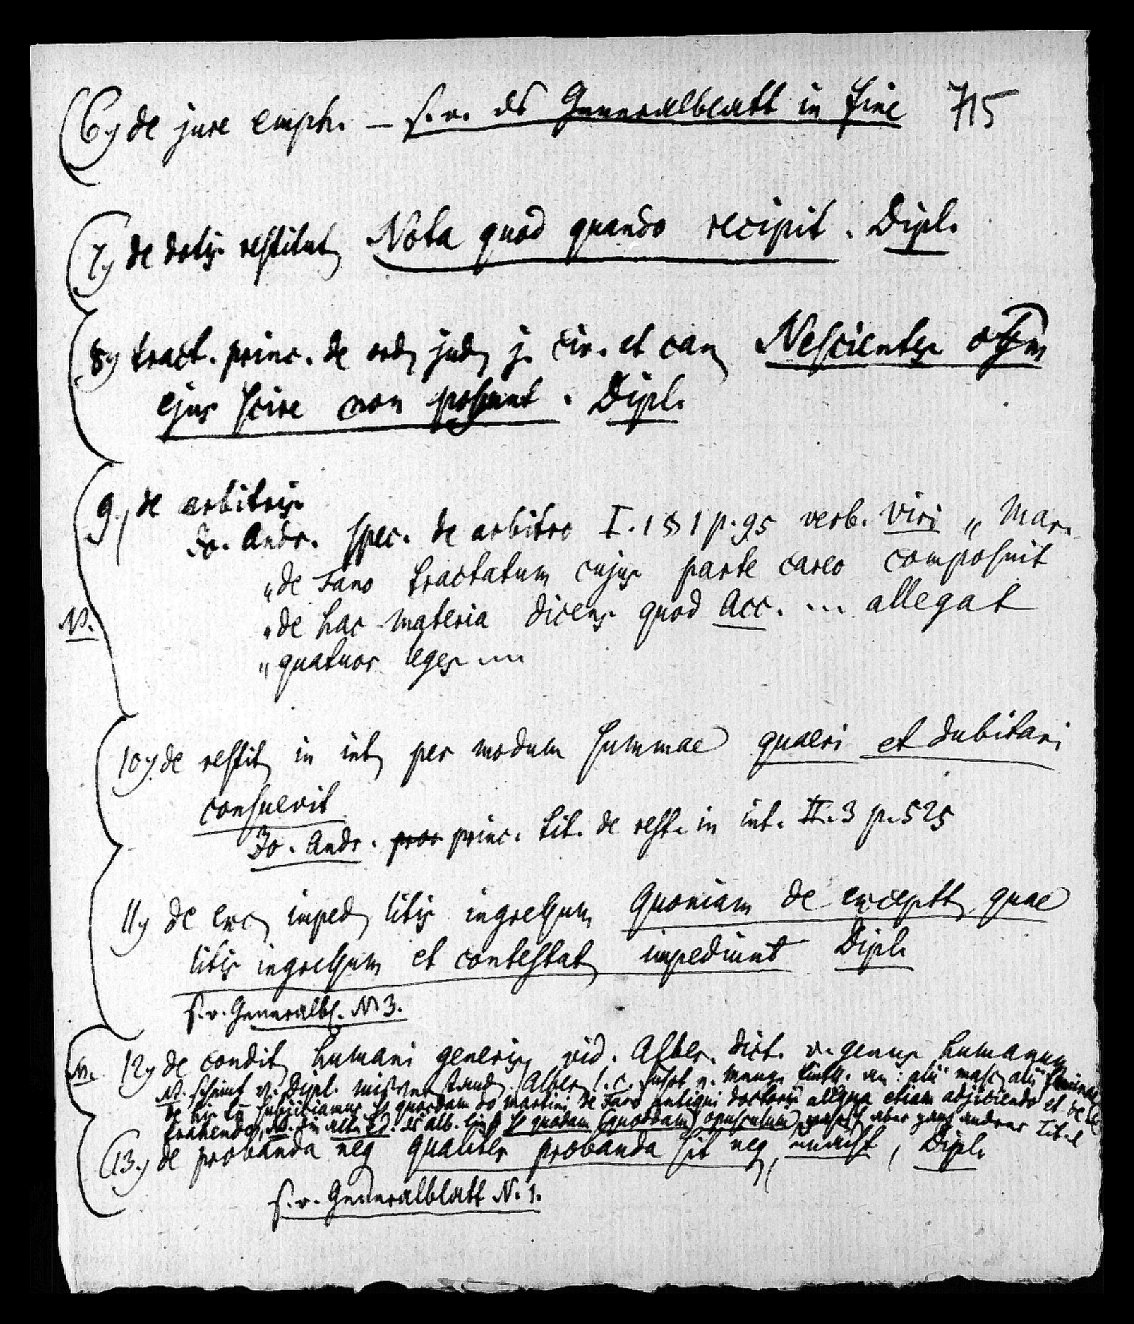 6) de jure emph. — s. v. ds Generalblatt in fine 715
7) de dotis restitut Nota quod quando recipit. Dipl.
8) tract. princ. de ord jud j. civ. et can Nescientes
ejus scire non possunt. Dipl.
9, de arbitris
Jo. Andr. spec. de arbitro I. 1 § 1 p. 95 verb. viri „ Mar.
„de Fano tractatum cujus parte careo composuit
NB. „de hac materia dicens quod Acc. ... allegat
„quatuor leges ....
10) de restit in int per modum summae quaeri et dubitari
consuevit
Jo. Andr. princ. tit. de rest. in int. II. 3 p. 525
11) de exc imped litis ingressum Quoniam de exceptt quae
litis ingressum et contestat impediunt Dipl.
s. v. Generalbl. N 3.
12) de condit humani generis vid. Alber. dict. v. genus humanum
NB. scheint v. Dipl. Alber l. c.
de quodam do Martini de Fano antiqui doctoris aliqua etiam adjiciendo et
trahendo, quodam (quoddam) opusculum aber ganz andrer Tit.
13) de probanda neg Qualiter probanda sit neg, Dipl.
s. v. Generalblatt N. 1.